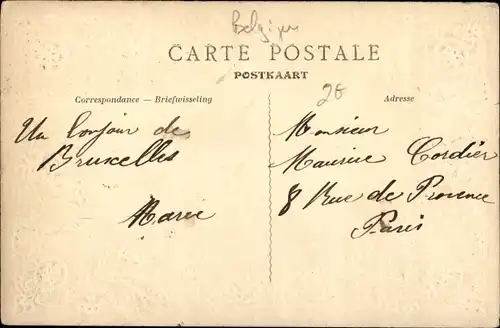 Belgique
CARTE POSTALE
POSTKAART
Correspondance — Briefwisseling
Adresse
28
Un bonjour de
Bruxelles
Marie
Monsieur
Maurice Cordier
8 Rue de Provence
Paris